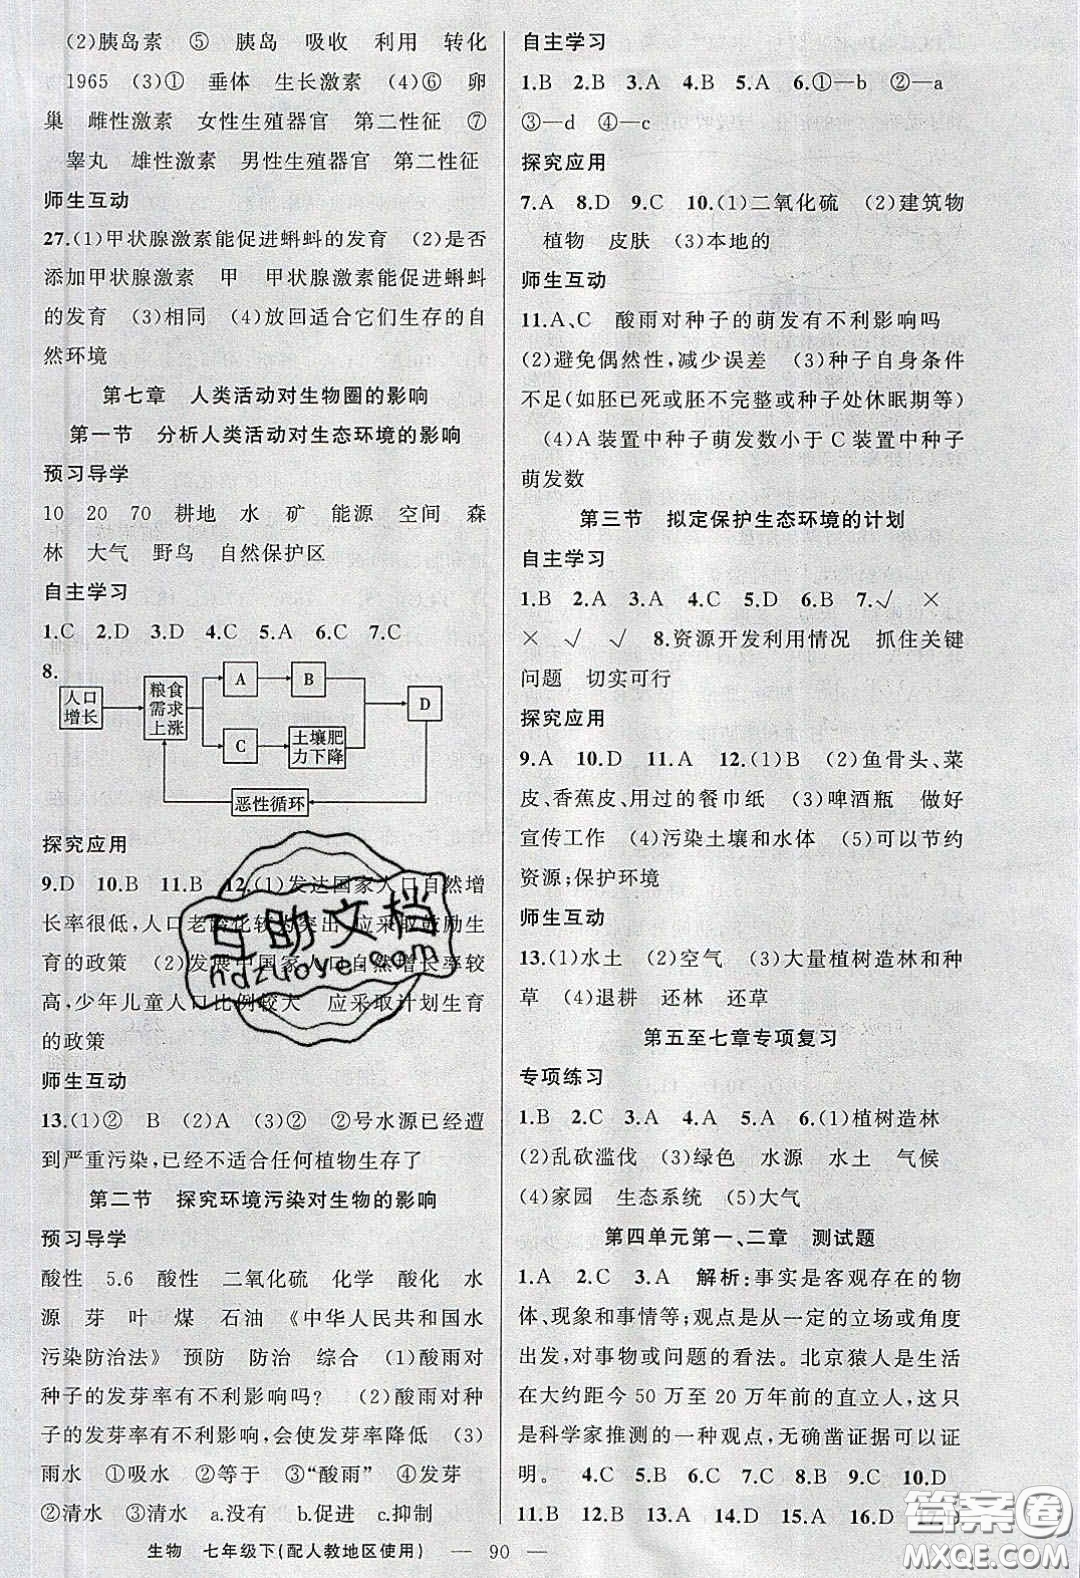 (2)胰岛素 ⑤ 胰岛 吸收 利用 转化
1965 (3)① 垂体 生长激素 (4)⑥ 卵
巢 雌性激素 女性生殖器官 第二性征 ⑦
睾丸 雄性激素 男性生殖器官 第二性征
师生互动
27.(1)甲状腺激素能促进蝌蚪的发育 (2)是否
添加甲状腺激素 甲 甲状腺激素能促进蝌蚪
的发育 (3)相同 (4)放回适合它们生存的自
然环境
第七章 人类活动对生物圈的影响
第一节 分析人类活动对生态环境的影响
预习导学
10 20 70 耕地 水 矿 能源 空间 森
林 大气 野鸟 自然保护区
自主学习
1.C 2.D 3.D 4.C 5.A 6.C 7.C
8.
人口增长
粮食需求上涨
A
B
C
土壤肥力下降
D
恶性循环
探究应用
9.D 10.B 11.B 12.(1)发达国家人口自然增
长率很低,人口老龄化较为突出 应采取鼓励生
育的政策 (2)发展中国家人口自然增长率较
高,少年儿童人口比例较大 应采取计划生育
的政策
师生互动
13.(1)② B (2)A (3)② ②号水源已经遭
到严重污染,已经不适合任何植物生存了
第二节 探究环境污染对生物的影响
预习导学
酸性 5.6 酸性 二氧化硫 化学 酸化 水
源 芽 叶 煤 石油 《中华人民共和国水
污染防治法》 预防 防治 综合 (1)酸雨对
种子的发芽率有不利影响吗? (2)酸雨对种
子的发芽率有不利影响,会使发芽率降低 (3)
雨水 ①吸水 ②等于 ③“酸雨” ④发芽
②清水 ③清水 a.没有 b.促进 c.抑制
自主学习
1.B 2.B 3.A 4.A 5.A 6.①—b ②—a
③—d ④—c
探究应用
7.A 8.D 9.C 10.(1)二氧化硫 (2)建筑物
植物 皮肤 (3)本地的
师生互动
11.A、C 酸雨对种子的萌发有不利影响吗
(2)避免偶然性,减少误差 (3)种子自身条件
不足(如胚已死或胚不完整或种子处休眠期等)
(4)A装置中种子萌发数小于C装置中种子
萌发数
第三节 拟定保护生态环境的计划
自主学习
1.B 2.A 3.A 4.C 5.D 6.B 7.√ ×
× √ √ 8.资源开发利用情况 抓住关键
问题 切实可行
探究应用
9.A 10.D 11.A 12.(1)B (2)鱼骨头、菜
皮、香蕉皮、用过的餐巾纸 (3)啤酒瓶 做好
宣传工作 (4)污染土壤和水体 (5)可以节约
资源;保护环境
师生互动
13.(1)水土 (2)空气 (3)大量植树造林和种
草 (4)退耕 还林 还草
第五至七章专项复习
专项练习
1.B 2.C 3.A 4.A 5.A 6.(1)植树造林
(2)乱砍滥伐 (3)绿色 水源 水土 气候
(4)家园 生态系统 (5)大气
第四单元第一、二章 测试题
1.A 2.C 3.A 解析:事实是客观存在的物
体、现象和事情等;观点是从一定的立场或角度
出发,对事物或问题的看法。北京猿人是生活
在大约距今50万至20万年前的直立人,这只
是科学家推测的一种观点,无确凿证据可以证
明。 4.C 5.C 6.C 7.B 8.B 9.C 10.D
11.B 12.B 13.B 14.D 15.D 16.D
生物 七年级下(配人教地区使用) — 90 —
互助文档
hdzuoye.com
答案圈
MXQE.COM